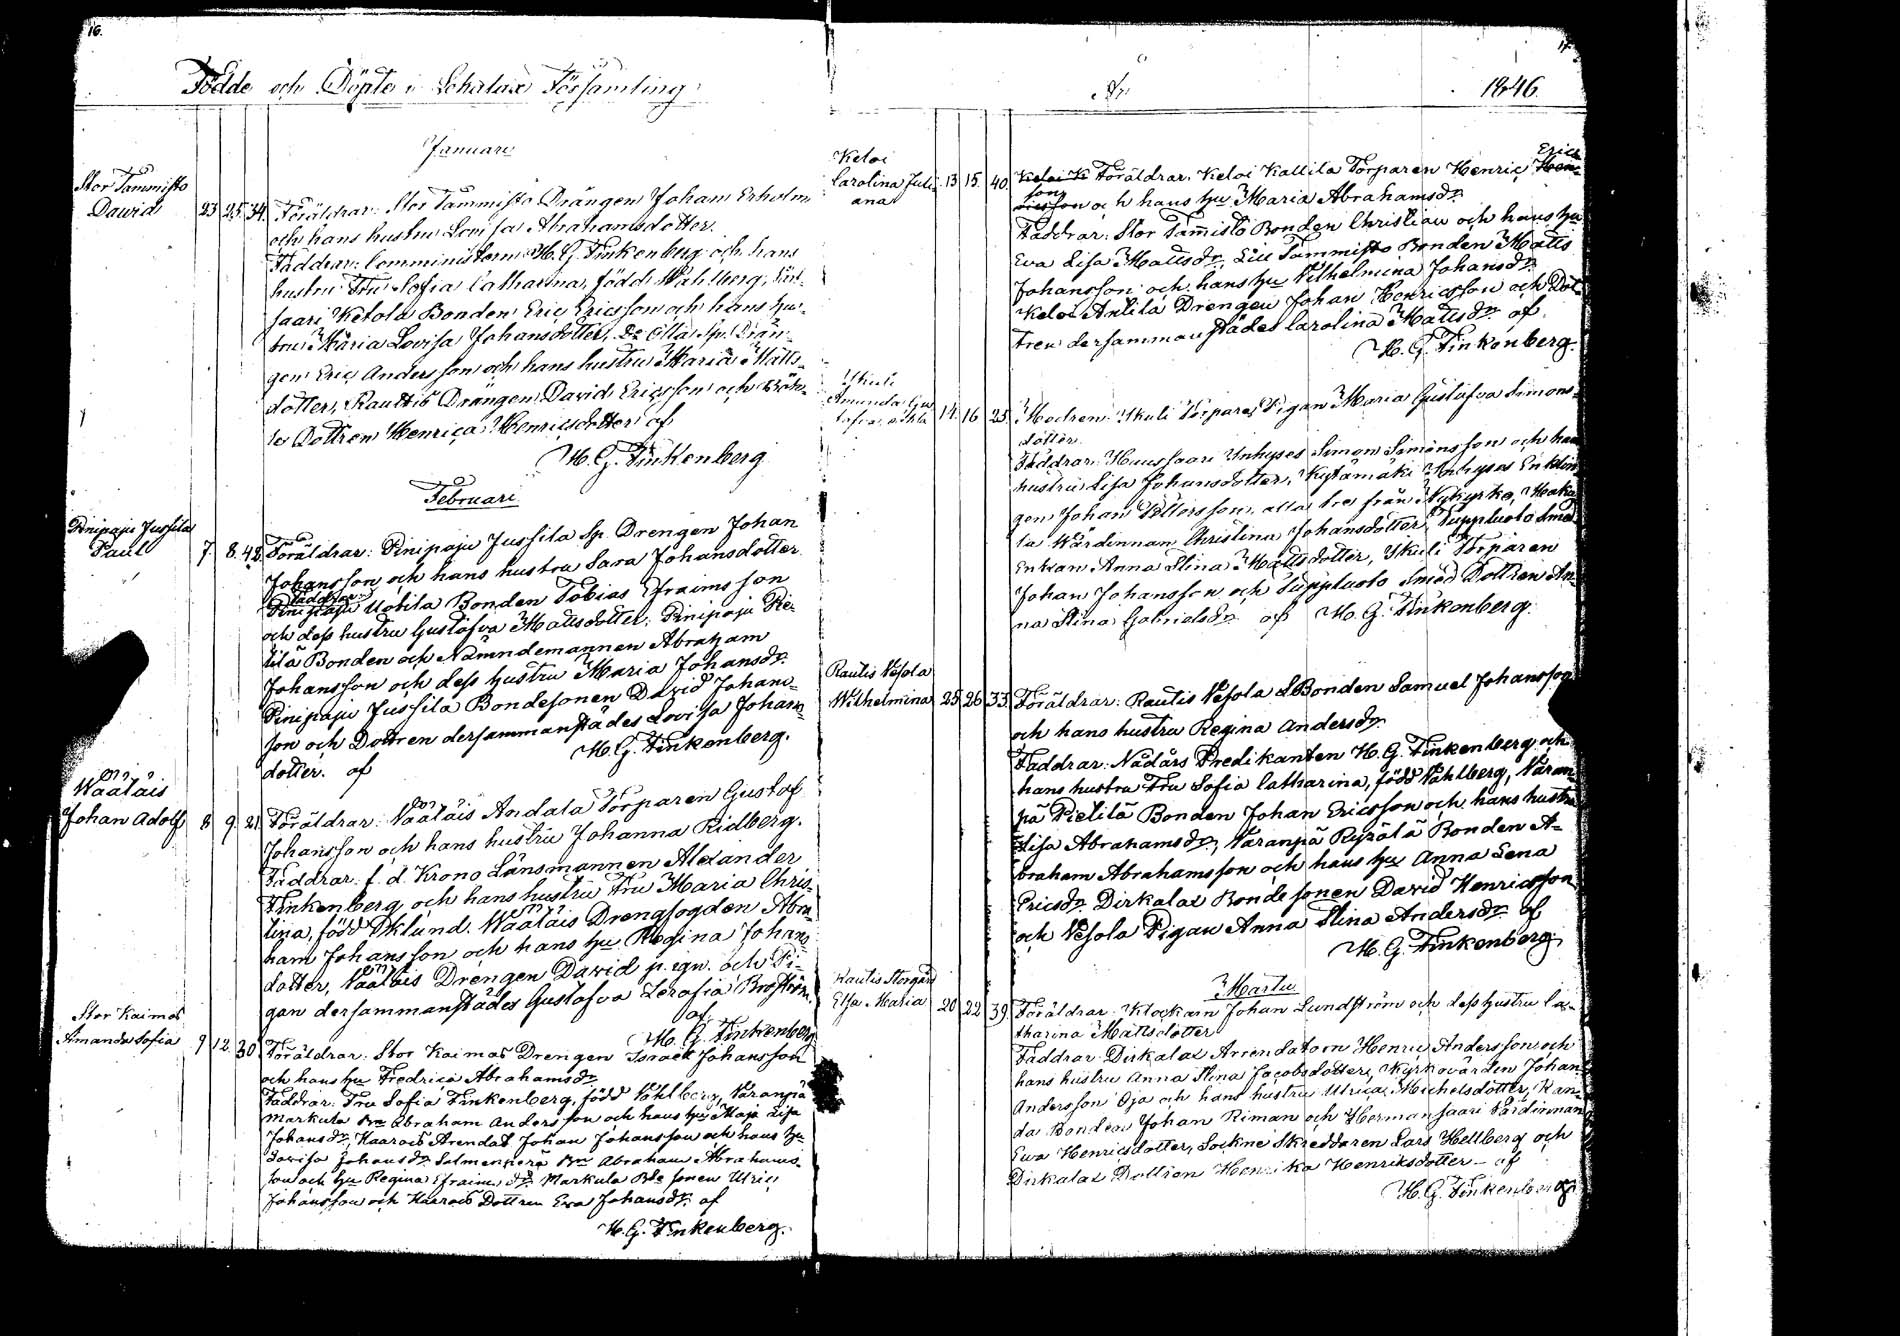 16.
Födde och Döpte i Lokalax Församling
Januari
Stor Tammisto
David 23 25 34. Föräldrar: Stor Tammisto Drängen Johan Erholm
och hans hustru Lovisa Abrahamsdotter.
Faddrar: Comministern H. G. Finkenberg och hans
hustru Fru Sofia Catharina, född Wahlberg,
saari Ketola Bonden Eric Ericsson och hans hu-
stru Maria Lovisa Johansdotter, Sp. Drän-
gen Eric Andersson och hans hustru Maria Matts-
dotter, Rauttis Drängen David Ericsson och
Dottren Henrica Henricsdotter af
H. G. Finkenberg
Februari
Pinipaju Jussila
Paul 7. 8. 42. Föräldrar: Pinipaju Jussila Sp. Drengen Johan
Johansson och hans hustru Sara Johansdotter
Faddrar
Pinipaju Uotila Bonden Tobias Efraimsson
och dess hustru Gustafva Mattsdotter, Pinipaju Pie-
tilä Bonden och Nämndemannen Abraham
Johansson och dess hustru Maria Johansdr.
Pinipaju Jussila Bondesonen David Johans-
son och Dottren dersammanstädes Lovisa Johans-
dotter. af H. G. Finkenberg.
Wäätäis
Johan Adolf 8 9. 21. Föräldrar: Wäätäis Andala Torparen Gustaf
Johansson och hans hustru Johanna Ridberg.
Faddrar: f. d. Krono Länsmannen Alexander
Finkenberg och hans hustru Fru Maria Chris-
tina, född Eklund. Wäätäis Drengfogden Abra-
ham Johansson och hans hu Regina Johans-
dotter, Wäätäis Drengen David jr. egn. och Pi-
gan dersammanstädes Gustafva Serafia Broström.
af
H. G. Finkenberg
Stor Kaimas
Amanda Sofia 9 12. 30 Föräldrar: Stor Kaimas Drengen Israel Johansson
och hans hu Fredrica Abrahamsdr.
Faddrar: Fru Sofia Finkenberg, född Vahlberg, Varanpä
Markula Bn Abraham Andersson och hans hu Maja Lisa
Johansdr, Kaarois Arendat. Johan Johansson och hans hu
Lovisa Johansdr Salmenperä Bn Abraham Abrahams-
son och hu Regina Efraimsdr. Markula Bdesonen Ulric
Johansson och Kaarois Dottren Eva Johansdr. af
H. G. Finkenberg.
17.
År 1846.
Keloi
Carolina Juli-
ana 13. 15. 40. Keloi K Föräldrar: Keloi Kallila Torparen Henric Erics
son och hans hu Maria Abrahamsdr.
Faddrar: Stor Tam̄isto Bonden Christian och hans hu
Eva Lisa Mattsdr, Lill Tammisto Bonden Matts
Johansson och hans hu Vilhelmina Johansdr.
Keloi Anlila Drengen Johan Henricsson och Dot-
tren dersammanstädes Carolina Mattsdr. af
H. G. Finkenberg.
Ykuli
Amanda Gus
tafva 14. 16 25. Modren: Ykuli Torpare Pigan Maria Gustafva Simons-
dotter.
Faddrar: Huussaari Inhyses Simon Simonsson och hans
hustru Lisa Johansdotter, Kytämäki Inhyses Enklin-
gen Johan Pettersson, alla tre från Nykyrko,
la Värdinnan Christina Johansdotter, Tuppluoto Smed
Enkan Anna Stina Mattsdotter, Ykuli Torparen
Johan Johansson och Tuppluoto Smed Dottren An-
na Stina Gabrielsdr. af H. G. Finkenberg.
Rautis Vesola
Wilhelmina 25. 26. 33. Föräldrar: Rautis Vesola LBonden Samuel Johansson
och hans hustru Regina Andersdr.
Faddrar: Nådårs Predikanten H. G. Finkenberg och
hans hustru Fru Sofia Catharina, född Vahlberg, Varan-
pä Pietilä Bonden Johan Ericsson och hans hustru
Lisa Abrahamsdr, Varanpä Rysälä Bonden A-
braham Abrahamsson och hans hu Anna Lena
Ericsdr Dirkalax Bondesonen David Henricsson
och Vesola Pigan Anna Stina Andersdr. af
H. G. Finkenberg.
Martii
Rautis Storgård
Elsa Maria 20 22 39 Föräldrar: Klockarn Johan Lundström och dess hustru Ca-
tharina Mattsdotter
Faddrar: Dirkalax Arrendatorn Henric Andersson och
hans hustru Anna Stina Jacobsdotter, Kyrkovärden Johan
Andersson Oja och hans hustru Ulrica Michelsdotter, Kan-
da Bonden Johan Riman och Hermansaari Värdinnan
Eva Henricsdotter, Sockne Skreddaren Lars Hellberg och
Dirkalax Dottren Henrika Henriksdotter – af
H. G. Finkenberg